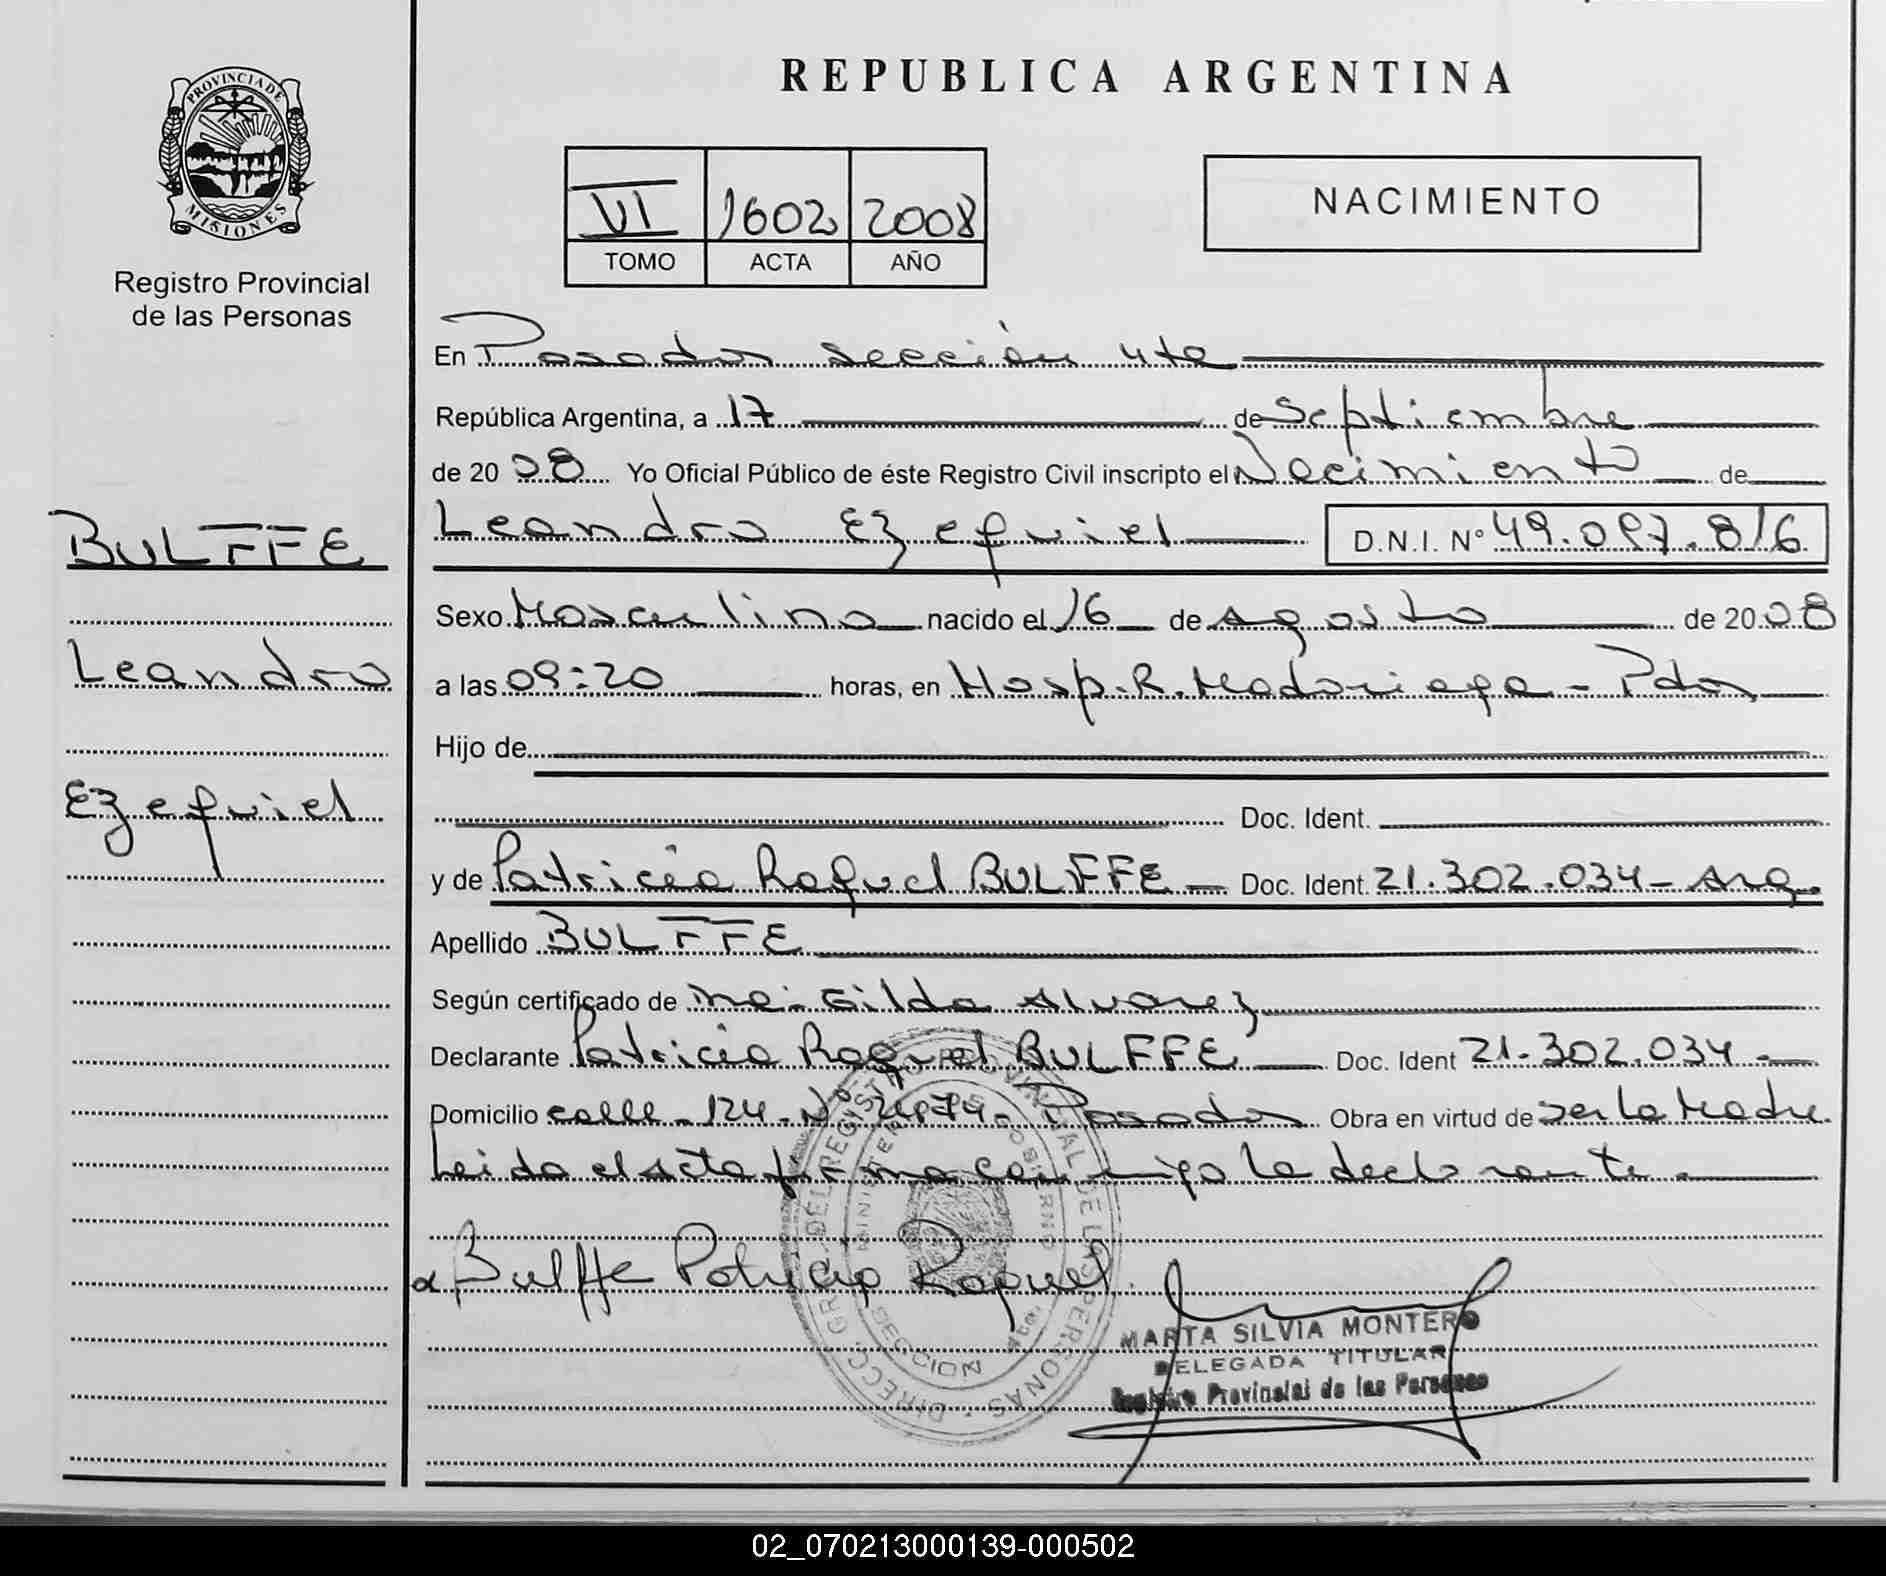 REPUBLICA ARGENTINA
PROVINCIA DE
MISIONES
Registro Provincial
de las Personas
VI 1602 2008
TOMO ACTA AÑO
NACIMIENTO
BULFFE
Leandro
Ezequiel
En Posadas sección 4ta
República Argentina, a 17 de Septiembre
de 2008 Yo Oficial Público de éste Registro Civil inscripto el Nacimiento de
Leandro Ezequiel D.N.I. Nº 49.097.816
Sexo Masculino nacido el 16 de Agosto de 2008
a las 09:20 horas, en Hosp. R. Madariaga - Pdas
Hijo de
Doc. Ident.
y de Patricia Raquel BULFFE - Doc. Ident. 21.302.034 - Arg.
Apellido BULFFE
Según certificado de Gilda Alvarez
Declarante Patricia Raquel BULFFE Doc. Ident 21.302.034
Domicilio calle - 124 - Nº Posadas Obra en virtud de ser la Madre
Leida el acta firma conmigo la declarante
Bulffe Patricia Raquel
DIRECC. GRAL. DEL REGISTRO PROVINCIAL DE LAS PERSONAS
MINISTERIO DE GOBIERNO
SECCION
MARTA SILVIA MONTERO
DELEGADA TITULAR
Registro Provincial de las Personas
02_070213000139-000502